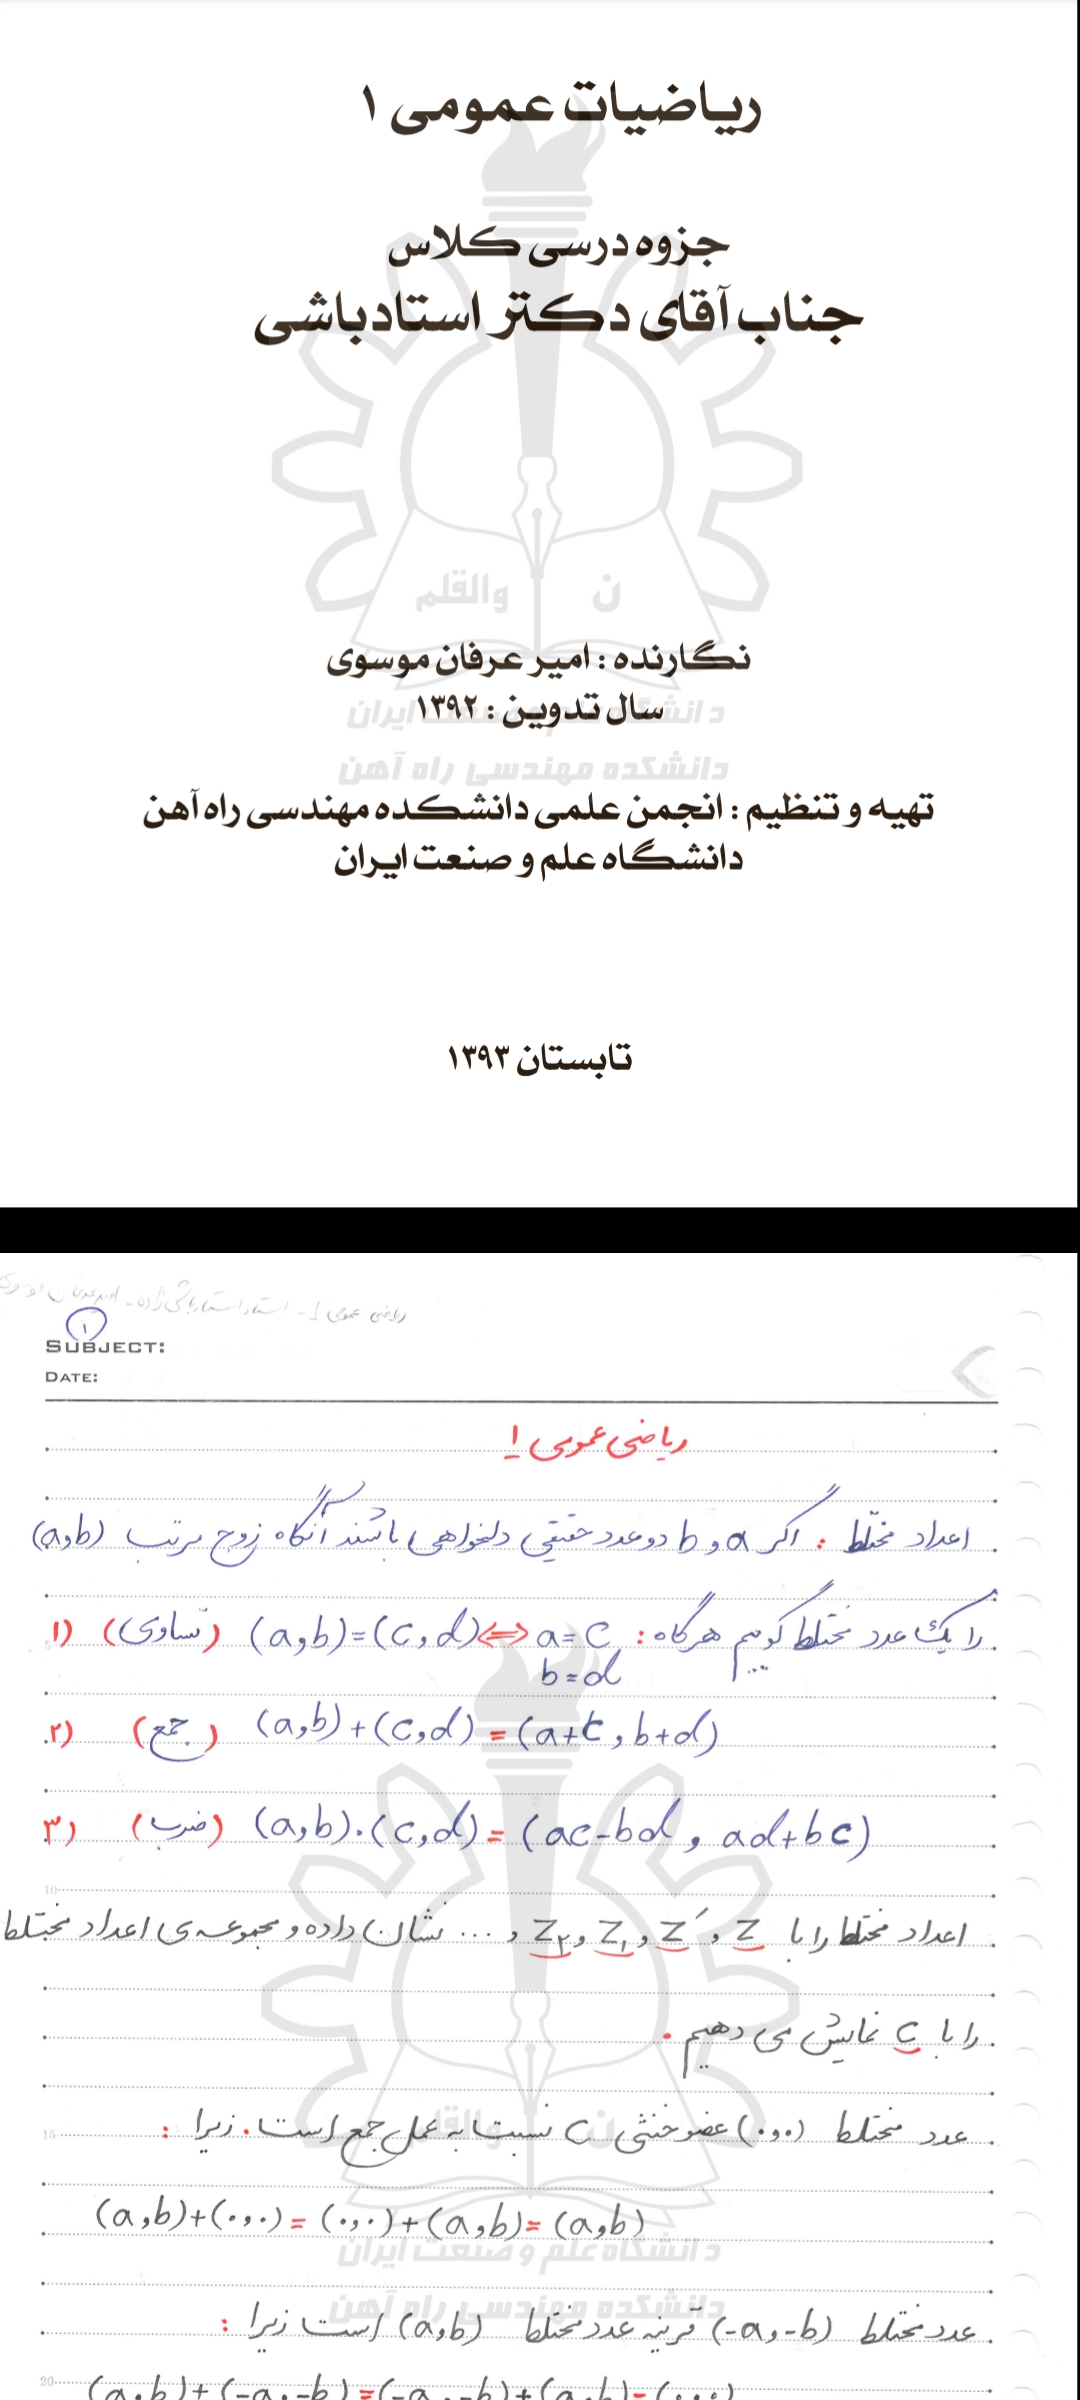 ریاضیات عمومی ۱
جزوه درسی کلاس
جناب آقای دکتر استادباشی
ن والقلم
نگارنده : امیر عرفان موسوی
سال تدوین : ۱۳۹۲
دانشگاه علم و صنعت ایران
دانشکده مهندسی راه آهن
تهیه و تنظیم : انجمن علمی دانشکده مهندسی راه آهن
دانشگاه علم و صنعت ایران
تابستان ۱۳۹۳
ریاضی عمومی 1 - استاد استادباشی زاده - امیرعرفان موسوی
۱
SUBJECT:
DATE:
ریاضی عمومی 1
اعداد مختلط : اگر a و b دو عدد حقیقی دلخواهی باشند آنگاه زوج مرتب (a,b)
را یک عدد مختلط گوییم هرگاه : a=c ⇔ (a,b)=(c,d) (تساوی) (۱
b=d
۲) (جمع) (a,b)+(c,d) = (a+c , b+d)
۳) (ضرب) (a,b).(c,d) = (ac-bd , ad+bc)
10
اعداد مختلط را با z , z′ , z₁ , z₂ , ... نشان داده و مجموعه ی اعداد مختلط
را با C نمایش می دهیم .
ن والقلم
15
عدد مختلط (۰,۰) عضو خنثی C نسبت به عمل جمع است. زیرا :
(a,b)+(۰,۰) = (۰,۰)+(a,b) = (a,b)
دانشگاه علم و صنعت ایران
دانشکده مهندسی راه آهن
عدد مختلط (-a,-b) قرینه عدد مختلط (a,b) است زیرا :
20
(a,b)+(-a,-b)=(-a,-b)+(a,b)=(۰,۰)